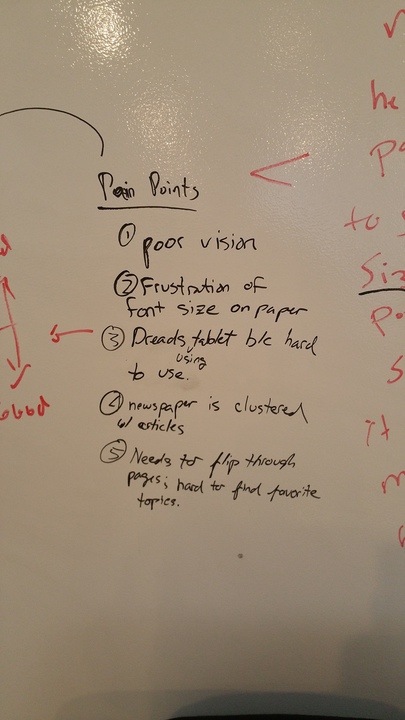 Pain Points
① poor vision
② Frustration of
font size on paper
③ Dreads using tablet b/c hard
to use.
④ newspaper is clustered
w/ articles
⑤ Needs to flip through
pages; hard to find favorite
topics.
he
to
Siz
it